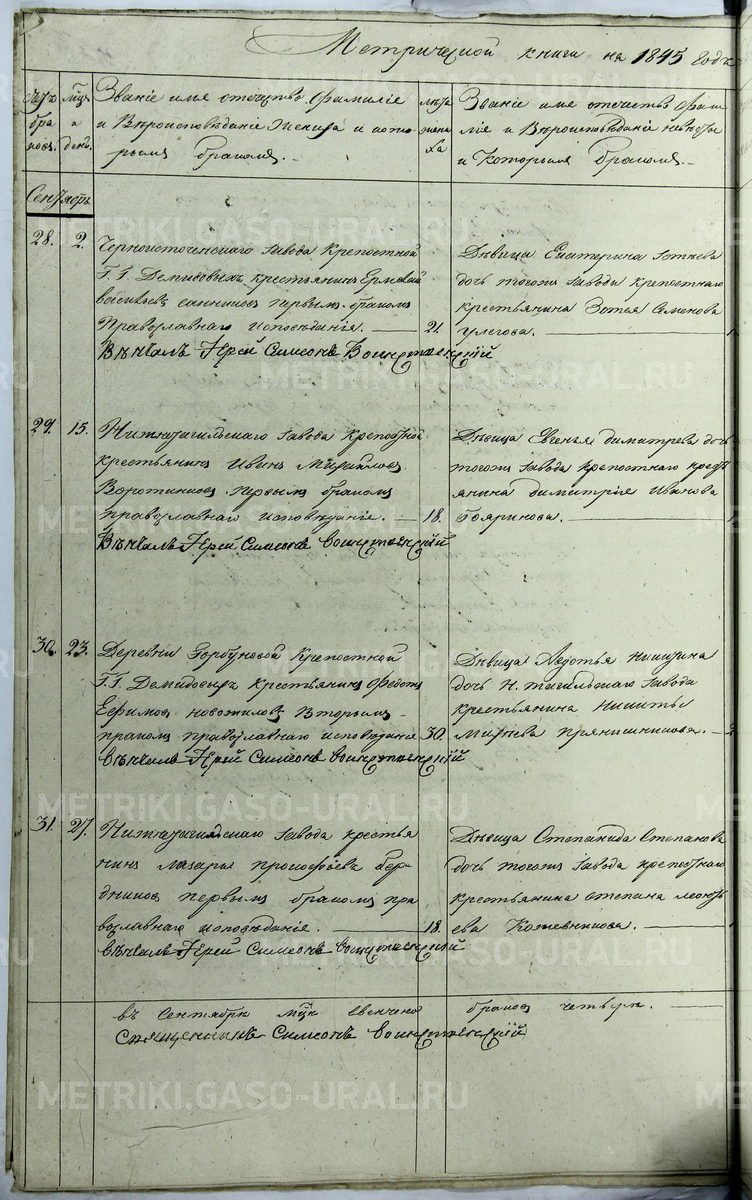 Метрической книги на 1845 годъ
Счетъ браковъ.
Мцъ и день.
Званiе имя отечество Фамилiе
и Вѣроисповѣданiе Жениха и кото-
рымъ бракомъ.
лѣта жениха
Званiе имя отечество Фами-
лiе и Вѣроисповѣданiе невѣсты
и Которымъ бракомъ.
Сентябрь.
28. 2. Черноисточенскаго завода Крепостной
Г. Г. Демидовыхъ крестьянинъ Ермолай
Васильевъ первымъ бракомъ
Православнаго исповѣданiя. 21.
Вѣнчалъ Iерей Симеонъ
Дѣвица Екатерина Зотiева
дочь тогожъ Завода крепостнаго
крестьянина Зотея Семенова
29. 15. Нижнетагильскаго Завода Крепостной
крестьянинъ Иванъ Михайловъ
Воротниковъ первымъ бракомъ
православнаго исповѣданiе. 18.
Вѣнчалъ Iерей Симеонъ
Дѣвица Евгенья димитрева дочь
тогожъ Завода крепостнаго кресть
янина димитрiе Иванова
Бояринова.
30. 23. Деревни Горбуновой Крепостной
Г. Г. Демидовыхъ крестьянинъ Федотъ
Ефимовъ новожиловъ Вторымъ
бракомъ православнаго исповѣданiе 30.
вѣнчалъ Iерей Симеонъ
Дѣвица Ѳедотья Никитина
дочь Н. тагильскаго Завода
крестьянина Никиты
прянишникова.
31. 27. Нижнетагильскаго Завода крестья
нинъ Лазарь Прокофьевъ бер-
дниковъ первымъ бракомъ пра
вославнаго исповѣданiе. 18.
вѣнчалъ Iерей Симеонъ
Дѣвица Степанида Степанова
дочь тогожъ Завода крепостнаго
крестьянина степана леонть
ева Кожевникова.
въ Сентябрѣ мцѣ венчено браковъ четыре.
Священникъ Симеонъ
METRIKI.GASO-URAL.RU